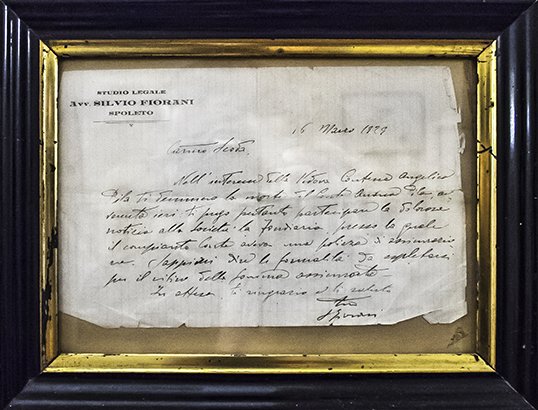 STUDIO LEGALE
Avv. SILVIO FIORANI
SPOLETO
16 Marzo 1929
Nell'interesse della Vedova Contessa Angelica
Pila ti denunzio la morte del Conte Pila av
venuta ieri. Ti prego pertanto partecipare la dolorosa
notizia alla Società la Fondiaria, presso la quale
il compianto Conte aveva una polizza di assicurazio
ne. Sappimi dire le formalità da espletarsi
per il ritiro della somma assicurata
In attesa ti ringrazio e ti saluto
Tuo
SFiorani